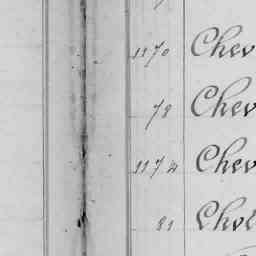 1170 Chev
78 Chev
1174 Chev
81 Chol